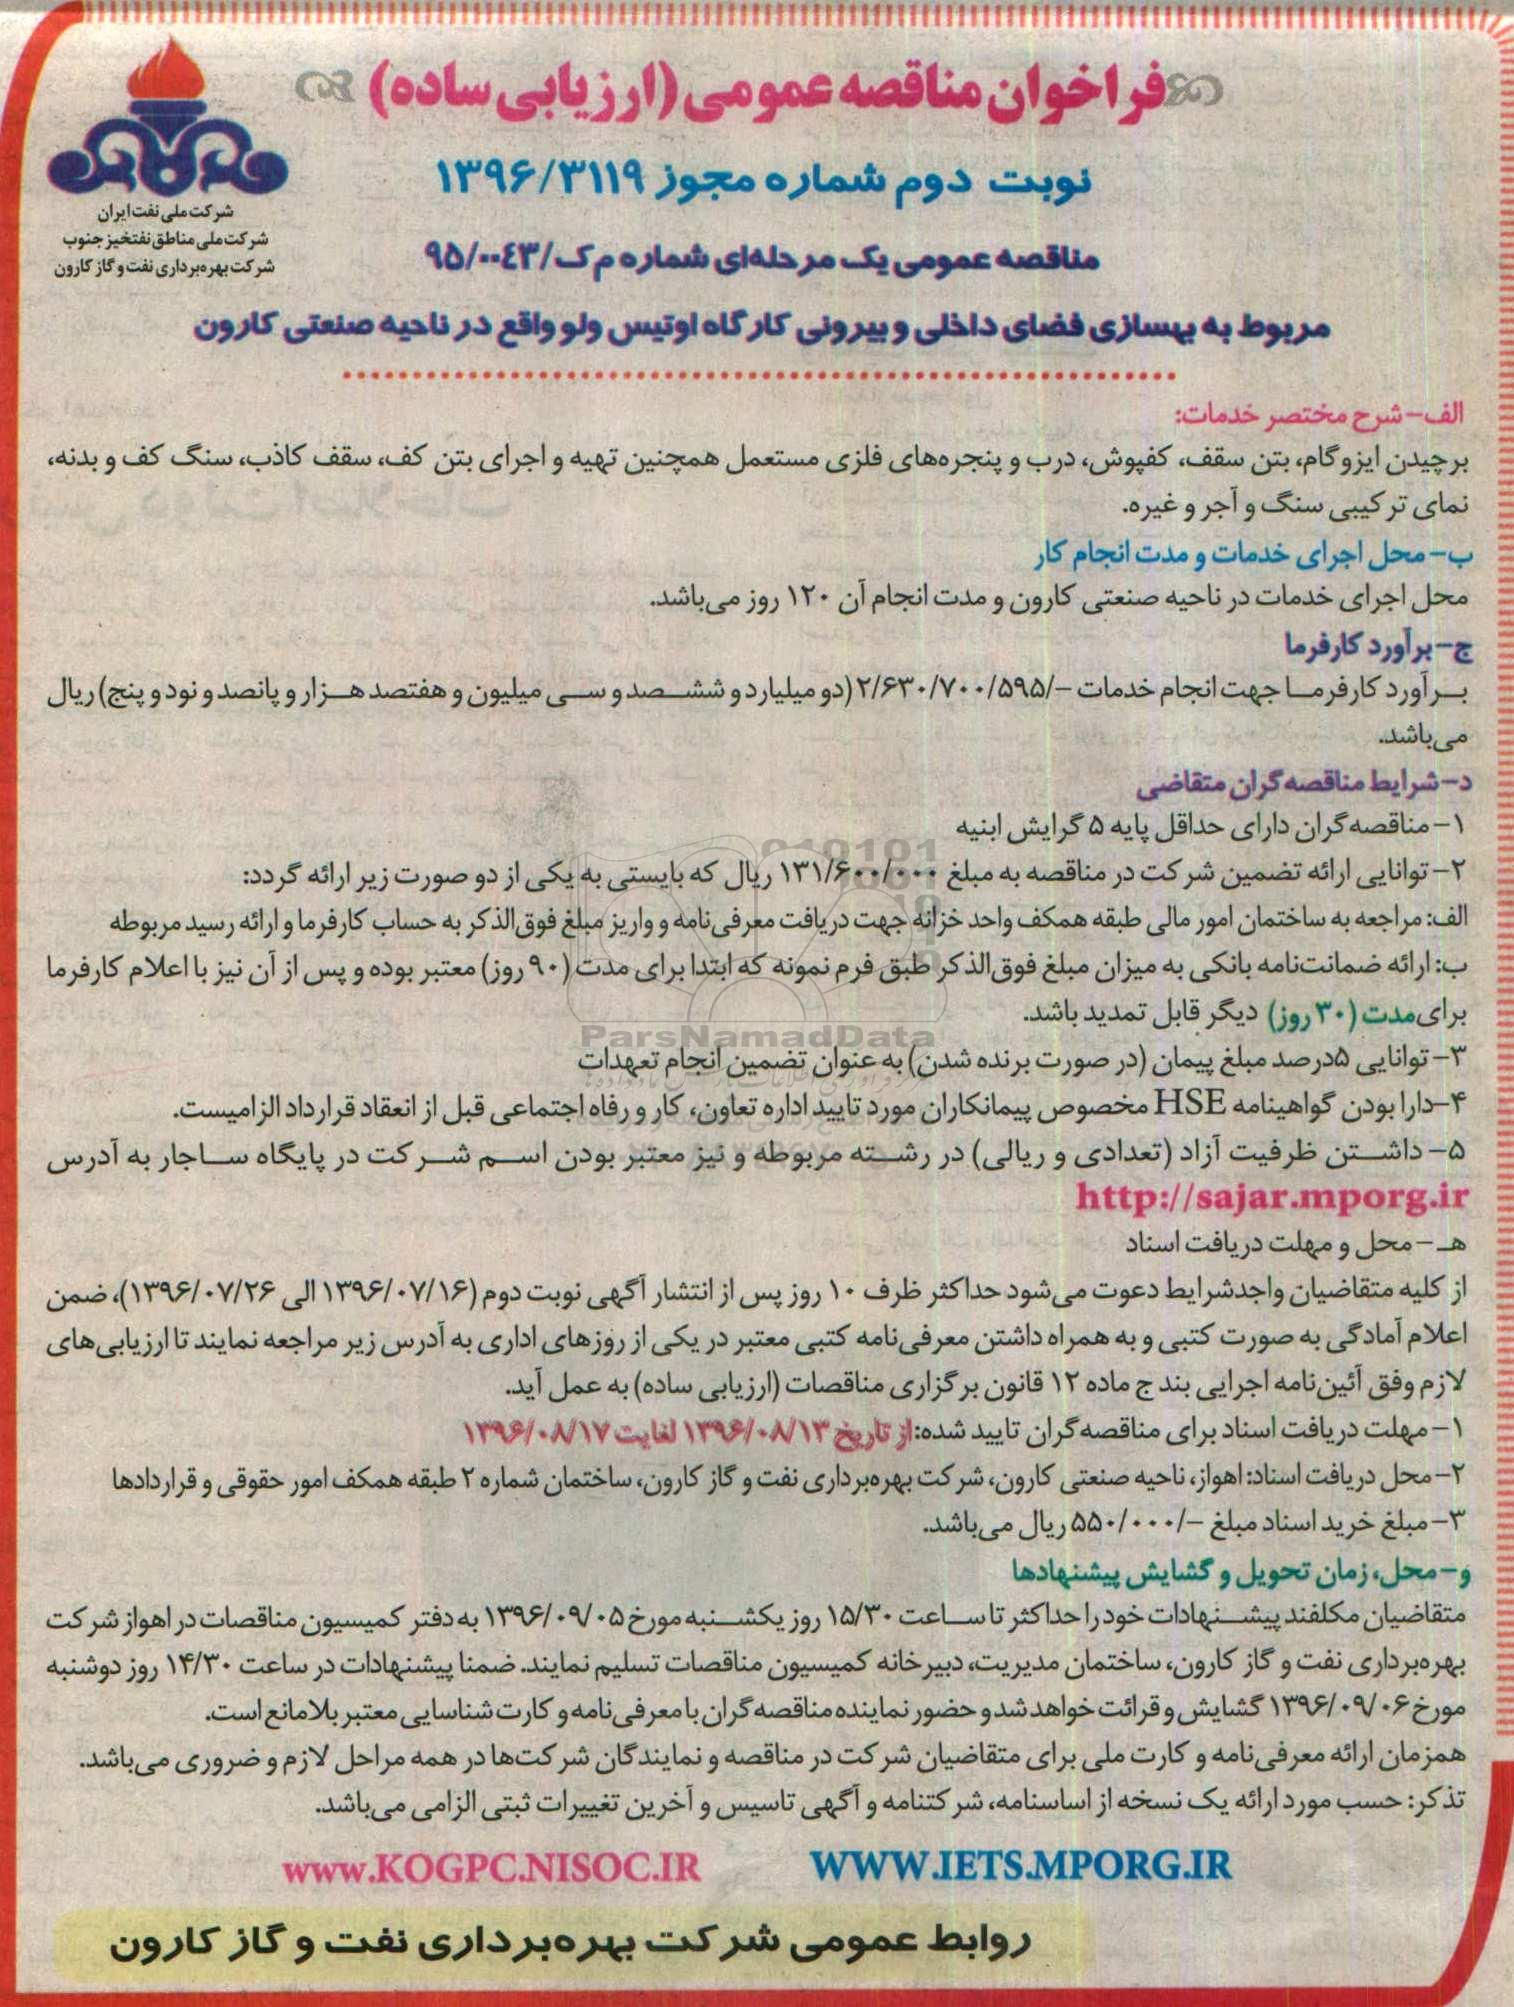 فراخوان مناقصه عمومی (ارزیابی ساده)
نوبت دوم شماره مجوز ۱۳۹۶/۳۱۱۹
شرکت ملی نفت ایران
شرکت ملی مناطق نفتخیز جنوب
شرکت بهره‌برداری نفت و گاز کارون
مناقصه عمومی یک مرحله‌ای شماره م ک/۹۵/۰۰۴۳
مربوط به بهسازی فضای داخلی و بیرونی کارگاه اوتیس ولو واقع در ناحیه صنعتی کارون
الف- شرح مختصر خدمات:
برچیدن ایزوگام، بتن سقف، کفپوش، درب و پنجره‌های فلزی مستعمل همچنین تهیه و اجرای بتن کف، سقف کاذب، سنگ کف و بدنه،
نمای ترکیبی سنگ و آجر و غیره.
ب- محل اجرای خدمات و مدت انجام کار
محل اجرای خدمات در ناحیه صنعتی کارون و مدت انجام آن ۱۲۰ روز می‌باشد.
ج- برآورد کارفرما
برآورد کارفرما جهت انجام خدمات -/۲/۶۳۰/۷۰۰/۵۹۵ (دو میلیارد و ششصد و سی میلیون و هفتصد هزار و پانصد و نود و پنج) ریال
می‌باشد.
د- شرایط مناقصه‌گران متقاضی
۱- مناقصه‌گران دارای حداقل پایه ۵ گرایش ابنیه
۲- توانایی ارائه تضمین شرکت در مناقصه به مبلغ ۱۳۱/۶۰۰/۰۰۰ ریال که بایستی به یکی از دو صورت زیر ارائه گردد:
الف: مراجعه به ساختمان امور مالی طبقه همکف واحد خزانه جهت دریافت معرفی‌نامه و واریز مبلغ فوق‌الذکر به حساب کارفرما و ارائه رسید مربوطه
ب: ارائه ضمانت‌نامه بانکی به میزان مبلغ فوق‌الذکر طبق فرم نمونه که ابتدا برای مدت (۹۰ روز) معتبر بوده و پس از آن نیز با اعلام کارفرما
برای مدت (۳۰ روز) دیگر قابل تمدید باشد.
ParsNamadData
۳- توانایی ۵درصد مبلغ پیمان (در صورت برنده شدن) به عنوان تضمین انجام تعهدات
۴-دارا بودن گواهینامه HSE مخصوص پیمانکاران مورد تایید اداره تعاون، کار و رفاه اجتماعی قبل از انعقاد قرارداد الزامیست.
۵- داشتن ظرفیت آزاد (تعدادی و ریالی) در رشته مربوطه و نیز معتبر بودن اسم شرکت در پایگاه ساجار به آدرس
http://sajar.mporg.ir
هـ - محل و مهلت دریافت اسناد
از کلیه متقاضیان واجدشرایط دعوت می‌شود حداکثر ظرف ۱۰ روز پس از انتشار آگهی نوبت دوم (۱۳۹۶/۰۷/۱۶ الی ۱۳۹۶/۰۷/۲۶)، ضمن
اعلام آمادگی به صورت کتبی و به همراه داشتن معرفی‌نامه کتبی معتبر در یکی از روزهای اداری به آدرس زیر مراجعه نمایند تا ارزیابی‌های
لازم وفق آئین‌نامه اجرایی بند ج ماده ۱۲ قانون برگزاری مناقصات (ارزیابی ساده) به عمل آید.
۱- مهلت دریافت اسناد برای مناقصه‌گران تایید شده: از تاریخ ۱۳۹۶/۰۸/۱۳ لغایت ۱۳۹۶/۰۸/۱۷
۲- محل دریافت اسناد: اهواز، ناحیه صنعتی کارون، شرکت بهره‌برداری نفت و گاز کارون، ساختمان شماره ۲ طبقه همکف امور حقوقی و قراردادها
۳- مبلغ خرید اسناد مبلغ -/۵۵۰/۰۰۰ ریال می‌باشد.
و- محل، زمان تحویل و گشایش پیشنهادها
متقاضیان مکلفند پیشنهادات خود را حداکثر تا ساعت ۱۵/۳۰ روز یکشنبه مورخ ۱۳۹۶/۰۹/۰۵ به دفتر کمیسیون مناقصات در اهواز شرکت
بهره‌برداری نفت و گاز کارون، ساختمان مدیریت، دبیرخانه کمیسیون مناقصات تسلیم نمایند. ضمنا پیشنهادات در ساعت ۱۴/۳۰ روز دوشنبه
مورخ ۱۳۹۶/۰۹/۰۶ گشایش و قرائت خواهد شد و حضور نماینده مناقصه‌گران با معرفی‌نامه و کارت شناسایی معتبر بلامانع است.
همزمان ارائه معرفی‌نامه و کارت ملی برای متقاضیان شرکت در مناقصه و نمایندگان شرکت‌ها در همه مراحل لازم و ضروری می‌باشد.
تذکر: حسب مورد ارائه یک نسخه از اساسنامه، شرکتنامه و آگهی تاسیس و آخرین تغییرات ثبتی الزامی می‌باشد.
www.KOGPC.NISOC.IR WWW.IETS.MPORG.IR
روابط عمومی شرکت بهره‌برداری نفت و گاز کارون